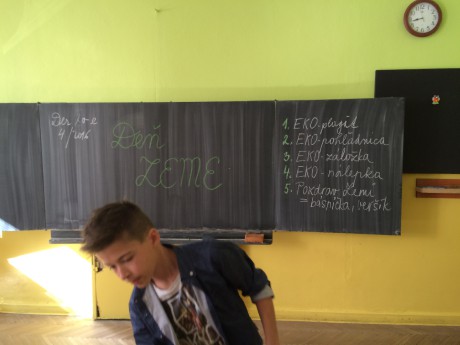 4/2016
Deň
ZEME
1. EKO-plagát
2. EKO-pohľadnica
3. EKO-záložka
4. EKO-nálepka
5. Pozdrav Zemi
= básnička, veršík